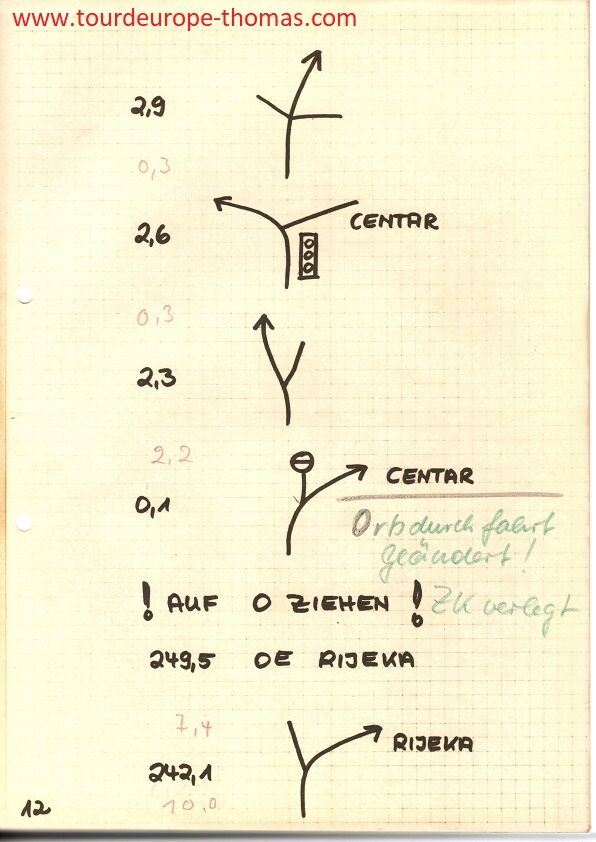 www.tourdeurope-thomas.com
2,9
0,3
2,6 CENTAR
0,3
2,3
2,2
0,1 CENTAR
Ortsdurchfahrt
geändert!
! AUF 0 ZIEHEN ! ZK verlegt
249,5 OE RIJEKA
7,4
RIJEKA
242,1
10,0
12